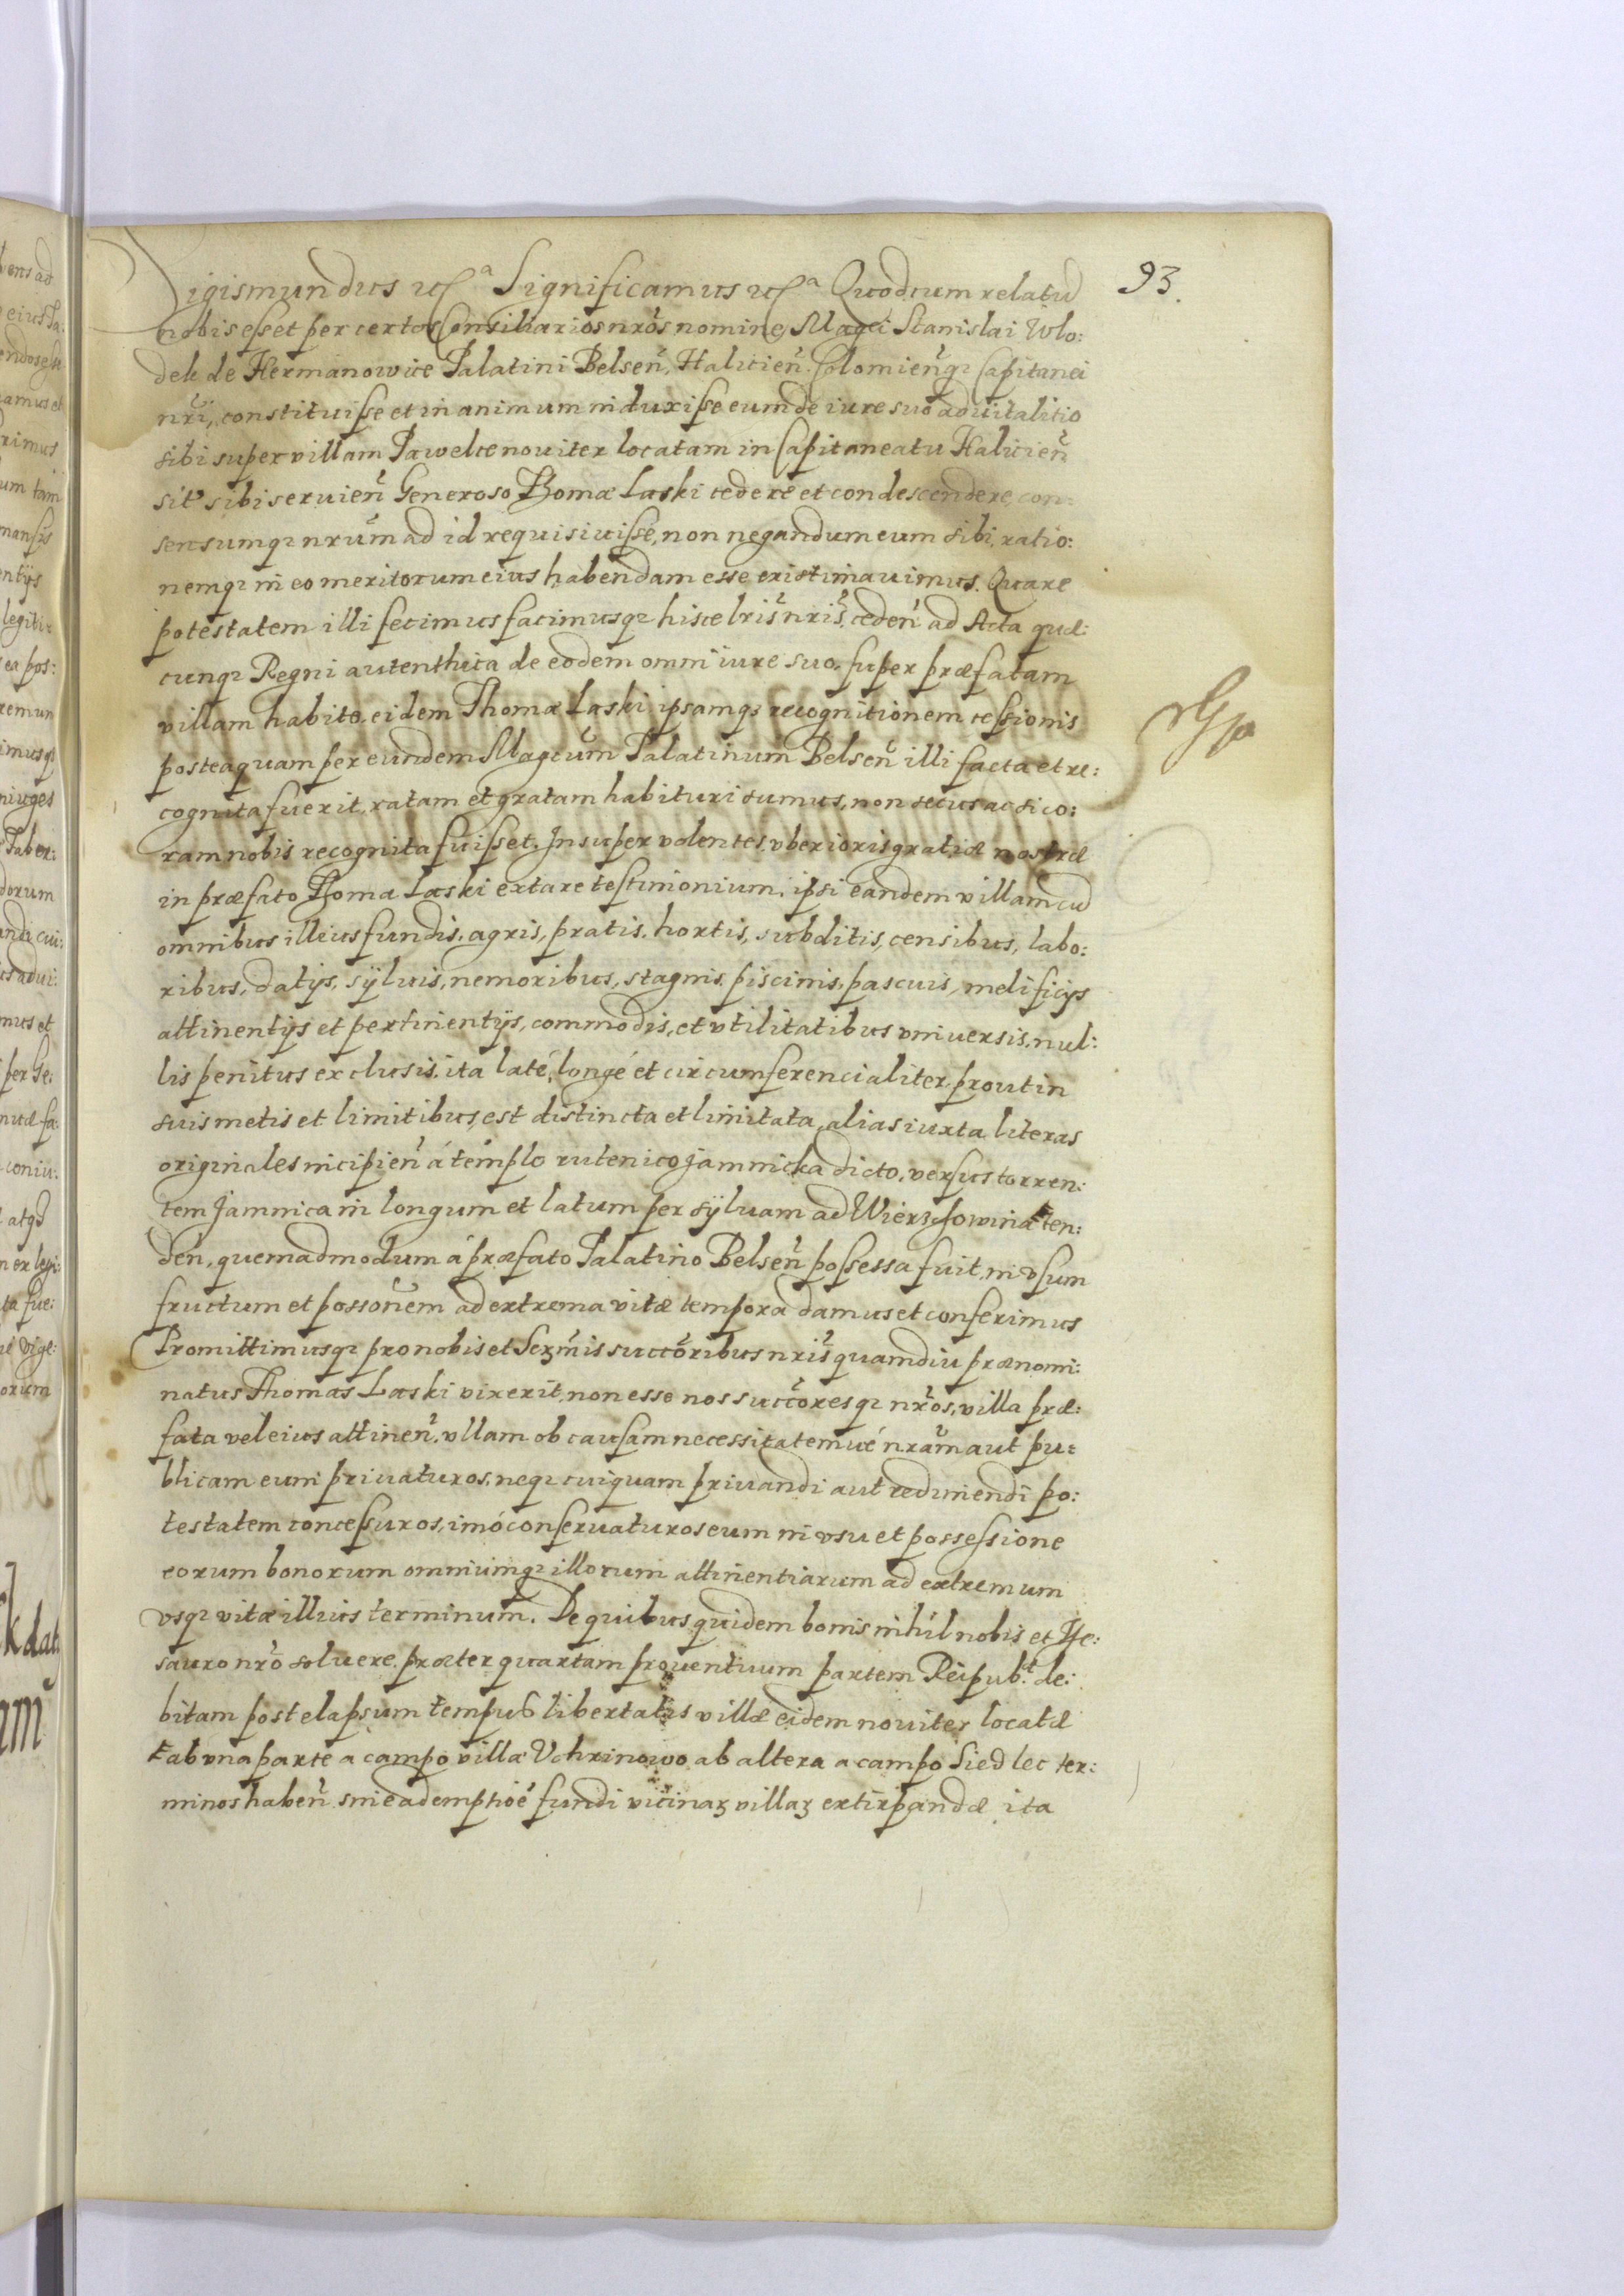 93.
Sigismundus etc.ª Significamus etc.ª Quod cum relatū
nobis esset per certos Consiliarios nr̃os nomine Magci Stanislai Wlo:
dek de Hermanowice Palatini Belsen̄, Halicien̄. Colomien̄q₃ Capitanei
nr̃i, constituisse et in animum induxisse eum de iure suo aduitalitio
sibi super villam Pawelce nouiter locatam in Capitaneatu Halicien̄
sit̃ sibi seruien̄ Generoso Thomæ Laski cedere et condescendere, con:
sensumq₃ nr̃um ad id requisiuisse, non negandum eum sibi, ratio:
nemq₃ in eo meritorum eius habendam esse existimauimus. Quare
potestatem illi fecimus facimusq₃ hisce lr̃is nr̃is, ceden̄ ad Acta quæ:
cunq₃ Regni autenthica de eodem omni iure suo, super præfatam
villam habito, eidem Thomæ Laski, ipsamq₃ recognitionem cessionis
posteaquam per eundem Magcum Palatinum Belsen̄ illi facta et re:
cognita fuerit, ratam et gratam habituri sumus, non secus ac si co:
ram nobis recognita fuisset. Insuper volentes vberioris gratiæ nostræ
in præfato Thoma Laski extare testimonium, ipsi eandem villam cū
omnibus illius fundis, agris, pratis, hortis, subditis, censibus, labo:
ribus, datijs, syluis, nemoribus, stagnis, piscinis, pascuis, melificijs
attinentijs et pertinentijs, commodis, et vtilitatibus vniuersis, nul:
lis penitus exclusis, ita laté, longé et circumferencialiter, prout in
suis metis et limitibus, est distincta et limitata, alias iuxta literas
originales incipien̄ á templo rutenico Jamnicka dicto, versus torren:
tem Jamnica in longum et latum per syluam ad Wierzchowinæ ten:
den̄, quemadmodum á præfato Palatino Belsen̄ possessa fuit, in vsum
fructum et posson̄em ad extrema vitæ tempora damus et conferimus
Promittimusq₃ pro nobis et Serm̄is succ̄oribus nr̃is quamdiu prænomi:
natus Thomas Laski vixerit, non esse nos succ̄oresq₃ nr̃os, villa præ:
fata vel eius attinen̄. vllam ob causam necessitatemué nr̃am aut pu:
blicam eum priuaturos, neq₃ cuiquam priuandi aut redimendi po:
testatem concessuros, imó conseruaturos eum in vsu et possessione
eorum bonorum omniumq₃ illorum attinentiarum ad extremum
vsq₃ vitæ illius terminum. De quibus quidem bonis nihil nobis et The:
sauro nr̃o soluere, præter quartam prouentuum partem Reipub.ᶜᵗ de:
bitam post elapsum tempus libertatis villæ eidem nouiter locatæ
t ab vna parte a campo villæ Vchrinowo ab altera a campo Siedlec ter:
minos haben̄ sine ademptiōē fundi vicinaꝝ villaꝝ extirpandæ ita